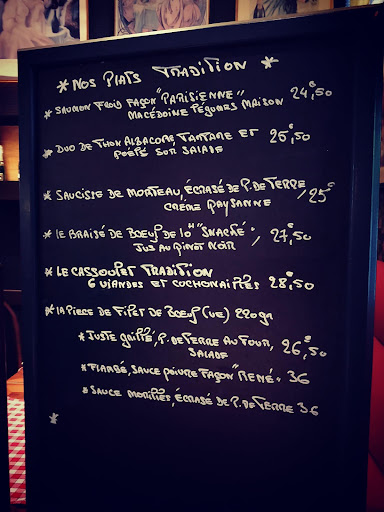 * NOS PLATS TRADITION *
* SAUMON FROID FAÇON "PARISIENNE" 24€,50
MACÉDOINE LÉGUMES MAISON
* DUO DE THON ALBACORE, TARTARE ET 25€,50
POÊLÉ SUR SALADE
* SAUCISSE DE MORTEAU, ÉCRASÉ DE P. DE TERRE, 25€
CRÈME PAYSANNE
* LE BRAISÉ DE BOEUF DE 10H "SNACKÉ", 27€,50
JUS AU PINOT NOIR
* LE CASSOULET TRADITION
6 VIANDES ET COCHONAILLES 28€,50
* LA PIECE DE FILET DE BOEUF (UE) 220gr
* JUSTE GRILLÉ, P. DE TERRE AU FOUR, 26€,50
SALADE
* FLAMBÉ, SAUCE POIVRE FAÇON "RENÉ" 36
* SAUCE MORILLES, ÉCRASÉ DE P. DE TERRE 36
*